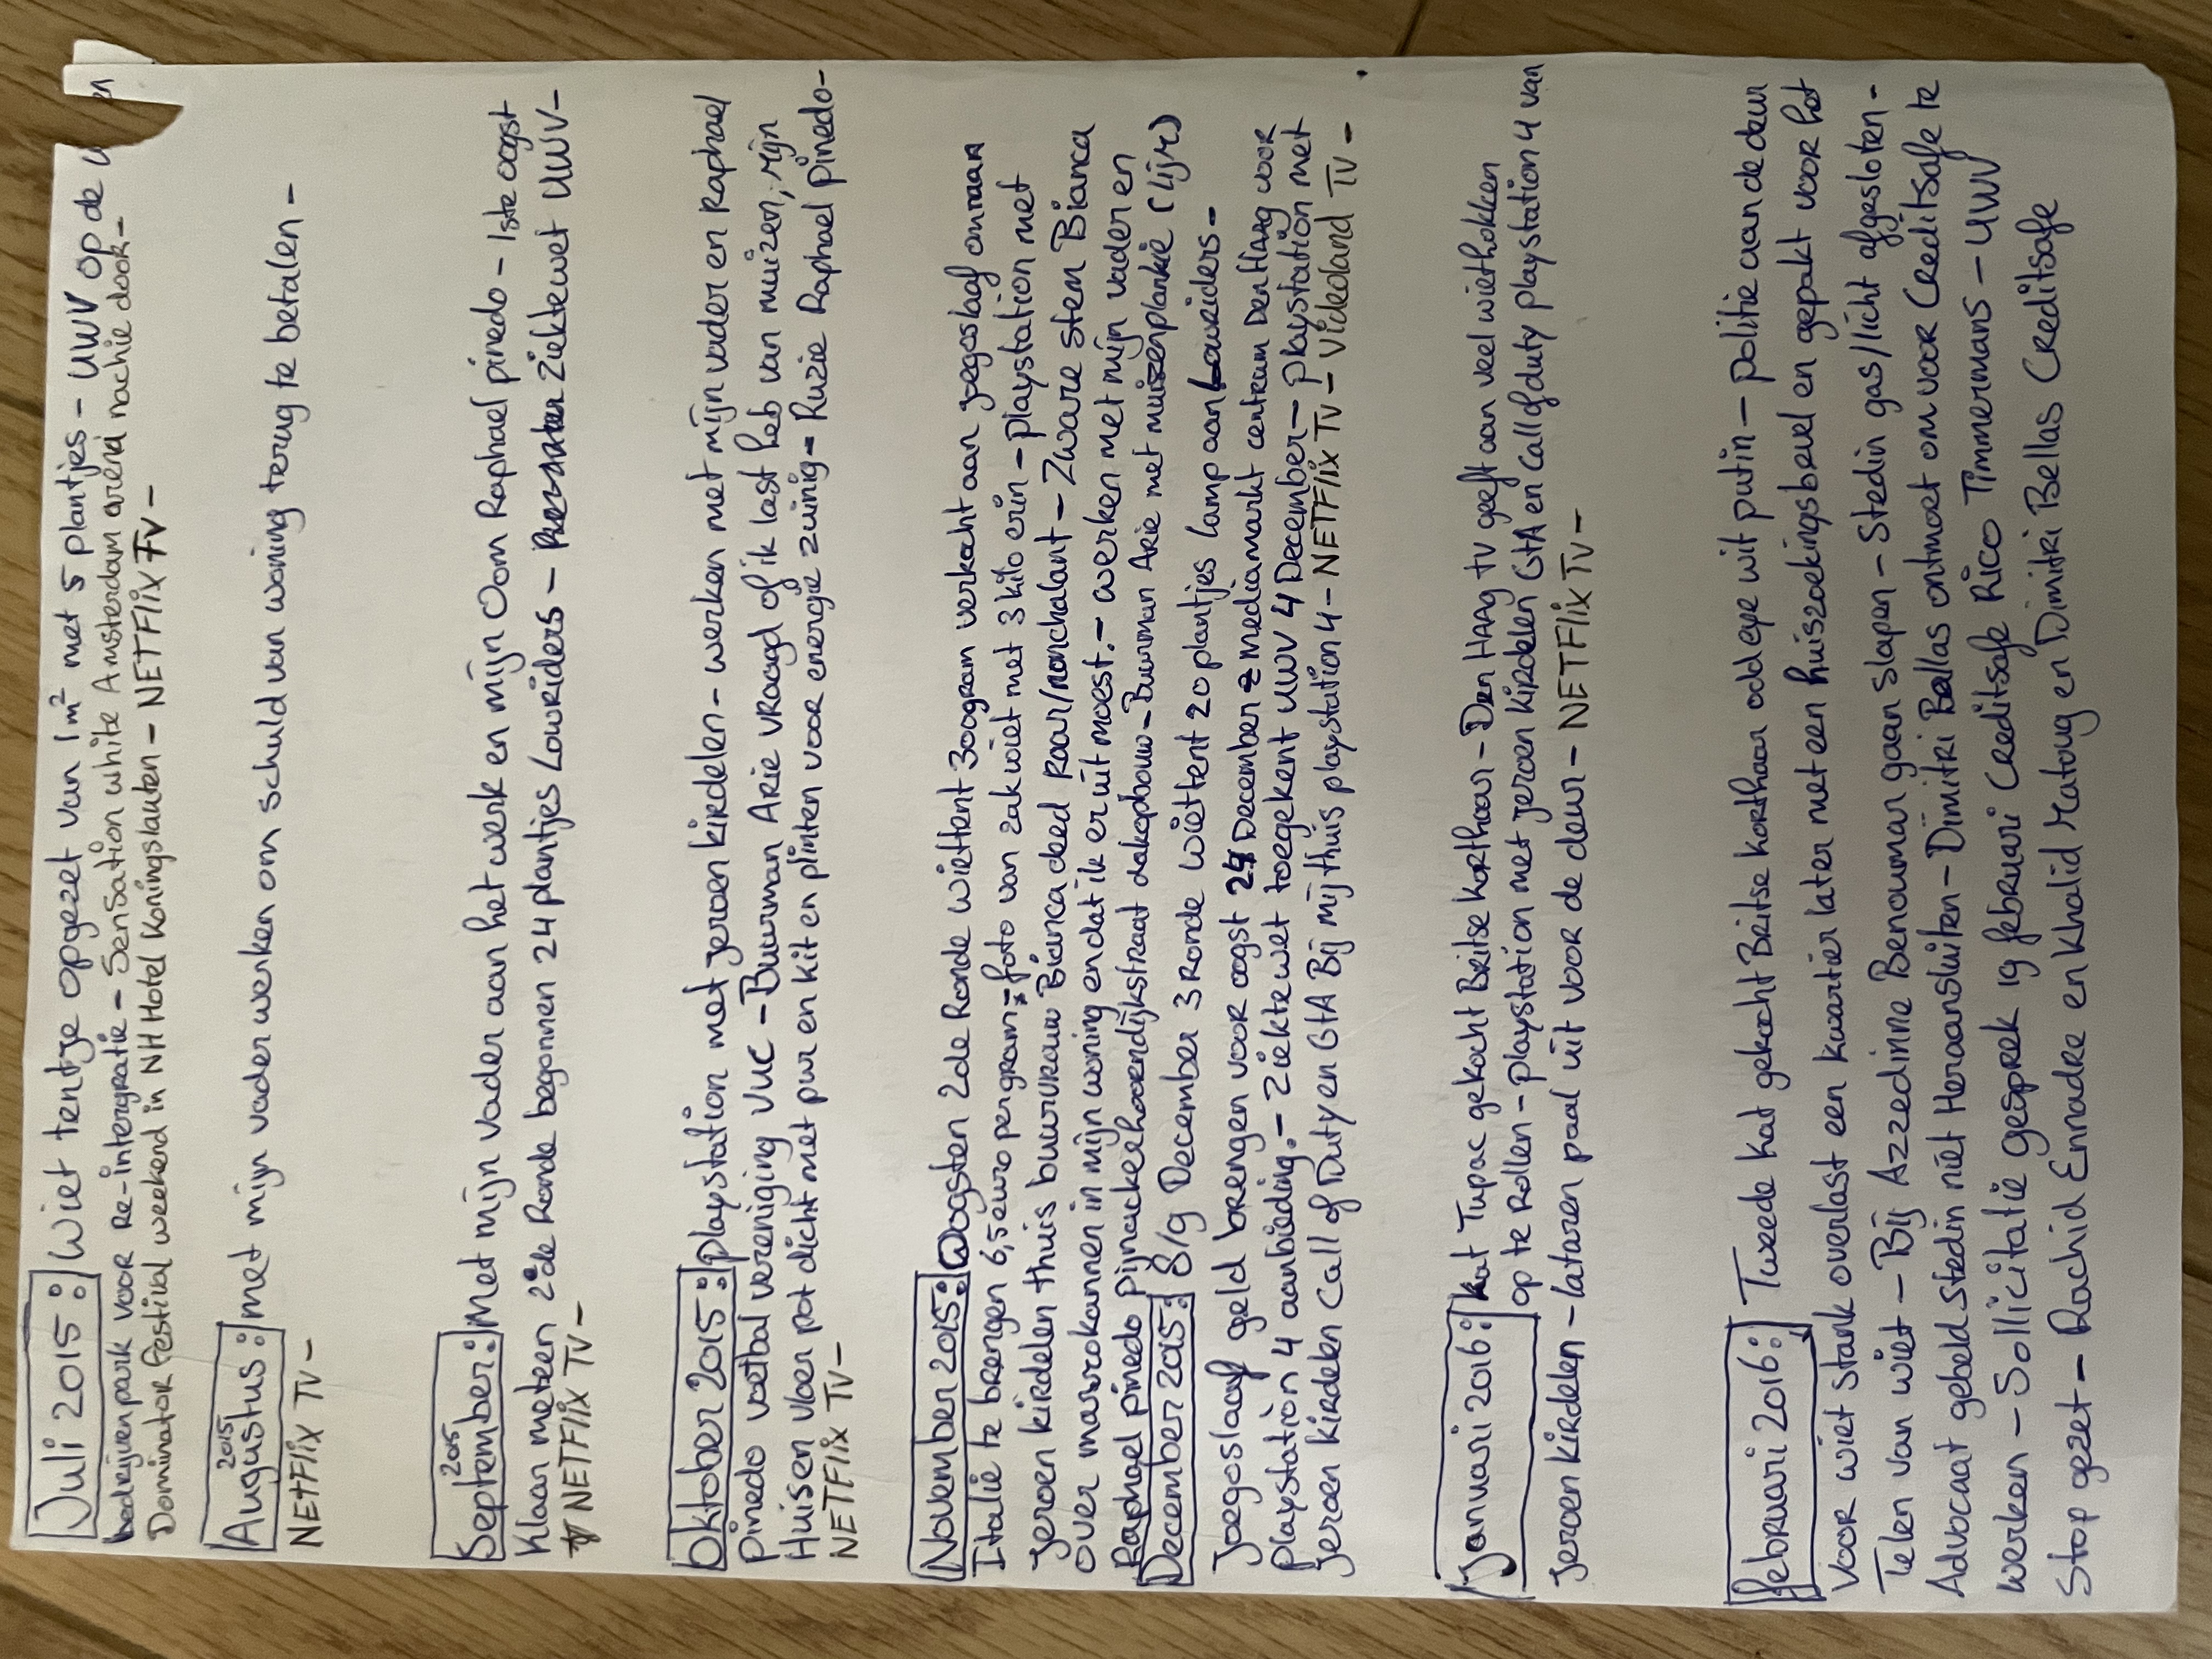 Juli 2015: Wiet tentje opgezet van 1m² met 5 plantjes - UWV op de
bedrijvenpark voor Re-intergratie - Sensation white Amsterdam arena nachie dook -
Dominator festival weekend in NH Hotel Koningslauten - NETFLIX TV -
Augustus 2015: met mijn vader werken om schuld van woning terug te betalen -
NETFLIX TV -
September 2015: Met mijn vader aan het werk en mijn Oom Raphael pinedo - 1ste oogst
Klaan meteen 2de Ronde begonnen 24 plantjes Lowriders - Ziektewet UWV -
NETFLIX TV -
Oktober 2015: playstation met jeroen kirdelen - werken met mijn vader en Raphael
Pinedo voetbal vereniging vuc - Buurman Arie vraagd of ik last heb van muizen, mijn
Huis en vloer pot dicht met pur en kit en plinten voor energie zuinig - Ruzie Raphael pinedo -
NETFLIX TV -
November 2015: Oogsten 2de Ronde wiettent 300gram verkocht aan joegoslaaf om naar
Italië te brengen 6,5 euro per gram - foto van zak wiet met 3 kilo erin - playstation met
jeroen kirdelen thuis buurvrouw Bianca deed Raar/nonchalant - Zware stem Bianca
over marrokannen in mijn woning en dat ik er uit moest. - werken met mijn vader en
Raphael pinedo Pijnackerhoorndijkstraat dakopbouw - Buurman Arie met muizenplankie (lijm)
December 2015: 8/9 December 3 Ronde wiettent 20 plantjes lamp aan Lowriders -
Joegoslaaf geld brengen voor oogst 24 December mediamarkt centrum Den Haag voor
playstation 4 aanbieding. - Ziektewet toegekent UWV 4 December - Playstation met
jeroen kirdelen Call of Duty en GTA Bij mij thuis playstation 4 - NETFLIX TV - Videoland TV -
Januari 2016: kat Tupac gekocht Britse korthaar - Den Haag tv geeft aan veel wiethokken
op te Rollen - playstation met jeroen kirdelen GTA en Call of duty playstation 4 van
jeroen kirdelen - lataren paal uit voor de deur - NETFLIX TV -
februari 2016: Tweede kat gekocht Britse korthaar odd eye wit putin - politie aan de deur
voor wiet stank overlast een kwartier later met een huiszoekingsbevel en gepakt voor het
Telen van wiet - Bij Azzedinne Benoumar gaan slapen - Stedin gas/licht afgesloten -
Advocaat gebeld stedin niet Heraansluiten - Dimitri Bellas ontmoet om voor Creditsafe te
werken - Sollicitatie gesprek 19 februari Creditsafe Rico Timmermans - UWV
Stop gezet - Rachid Ennadre en Khalid Matoug en Dimitri Bellas Creditsafe